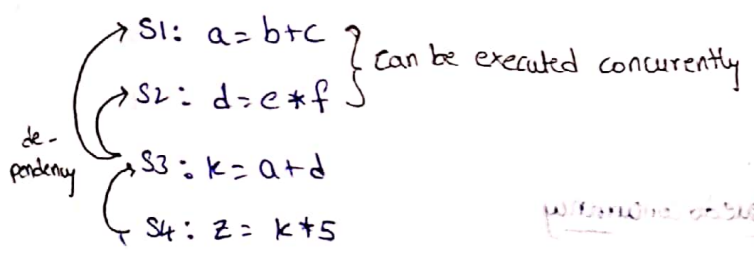 S1: a = b+c
can be executed concurently
S2: d = e * f
de-
pendency
S3: k = a + d
S4: z = k * 5